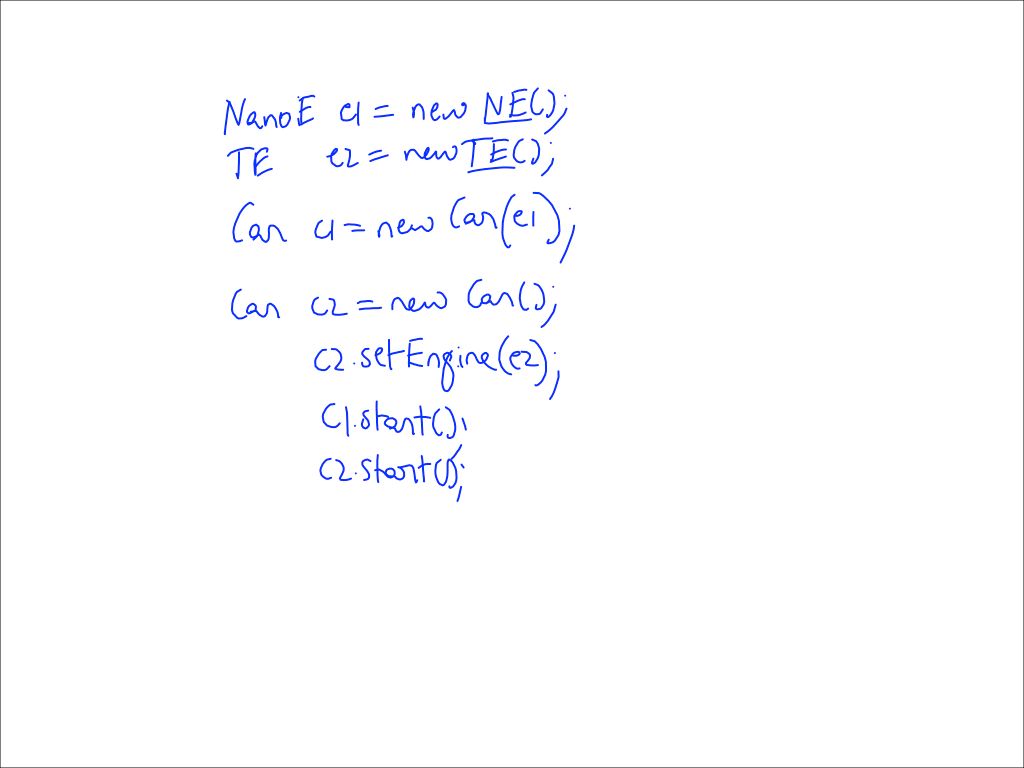 NanoE e1 = new NE();
TE e2 = new TE();
Car c1 = new Car(e1);
Car c2 = new Car();
c2.setEngine(e2);
c1.start();
c2.start();